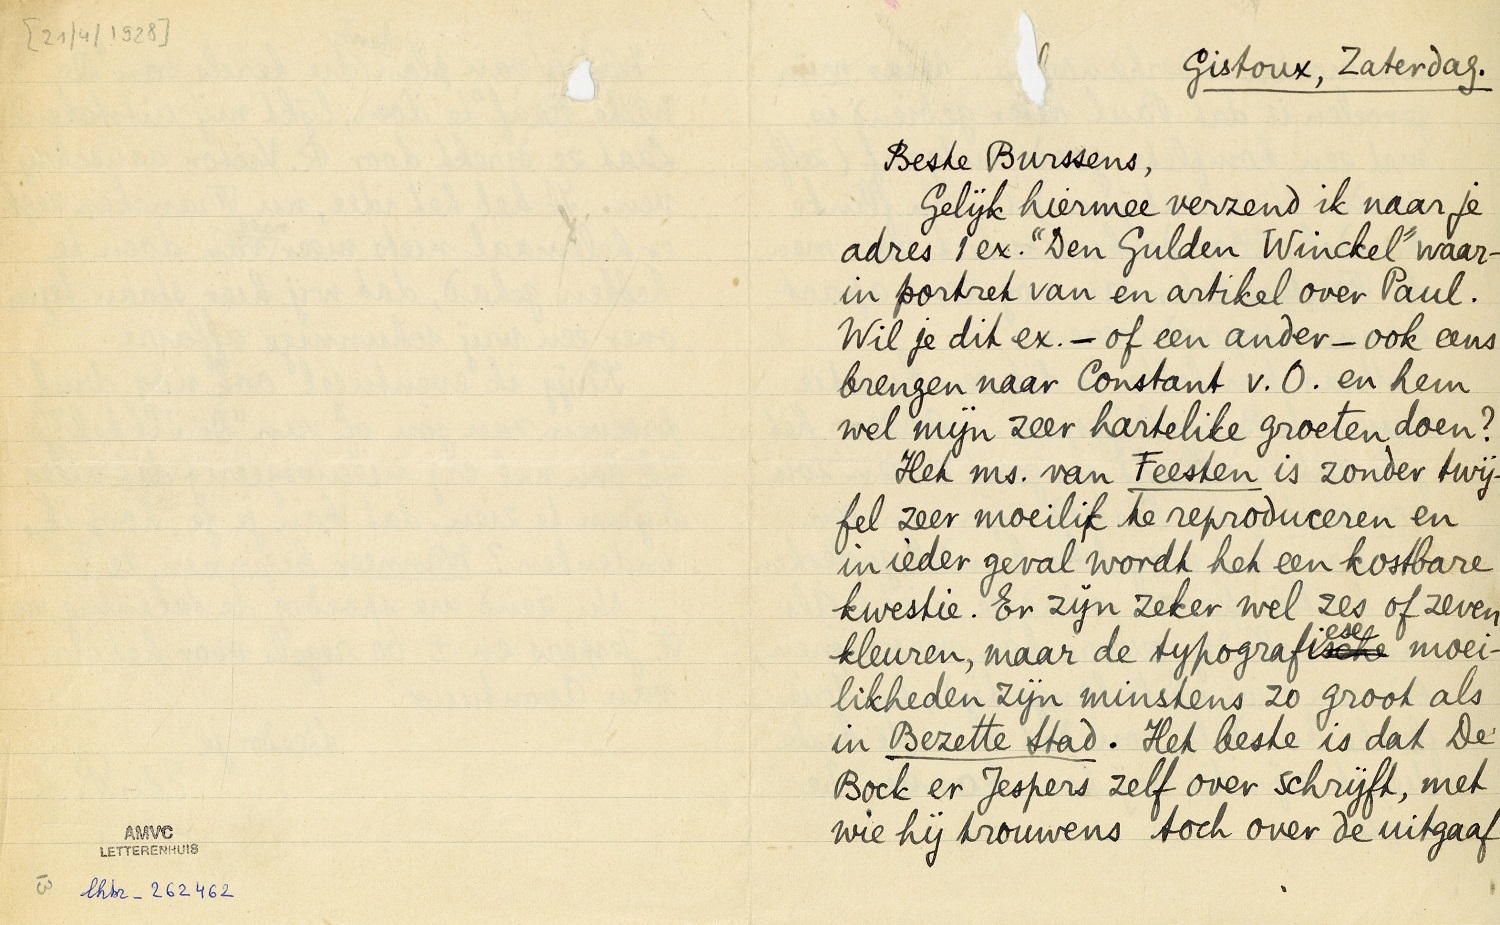 [21/4/1928]
Gistoux, Zaterdag.
Beste Burssens,
Gelijk hiermee verzend ik naar je
adres 1 ex. "Den Gulden Winckel" waar-
in portret van en artikel over Paul.
Wil je dit ex. – of een ander – ook eens
brengen naar Constant v. O. en hem
wel mijn zeer hartelike groeten doen?
Het ms. van Feesten is zonder twij-
fel zeer moeilik te reproduceren en
in ieder geval wordt het een kostbare
kwestie. Er zijn zeker wel zes of zeven
kleuren, maar de typografiese moei-
likheden zijn minstens zo groot als
in Bezette Stad. Het beste is dat De
Bock er Jespers zelf over schrijft, met
wie hij trouwens toch over de uitgaaf
AMVC
LETTERENHUIS
lhbr_262462